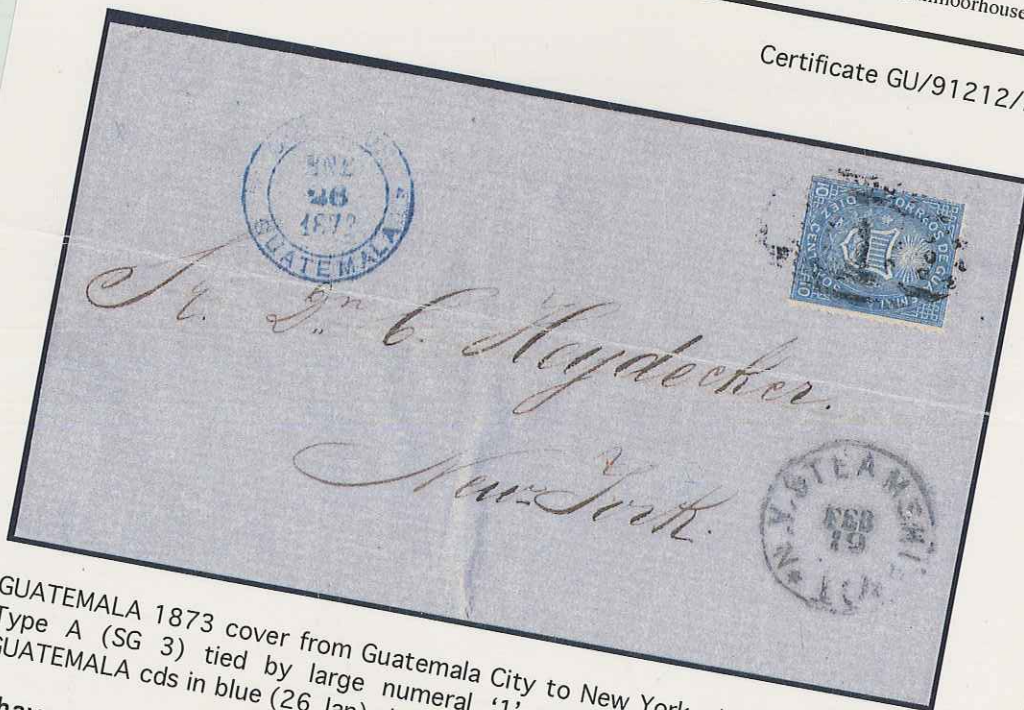 Certificate GU/91212/
ENE
26
1873
GUATEMALA
10
CORREOS DE GU
DIEZ
CENT
10
Sr. Dn C. Heydecker.
New York.
N.Y. STEAMSHI
FEB
19
GUATEMALA 1873 cover from Guatemala City to New York
Type A (SG 3) tied by large numeral '1'
GUATEMALA cds in blue (26 Jan)